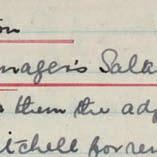 on
nager's Sala
them the ad
itchell for re